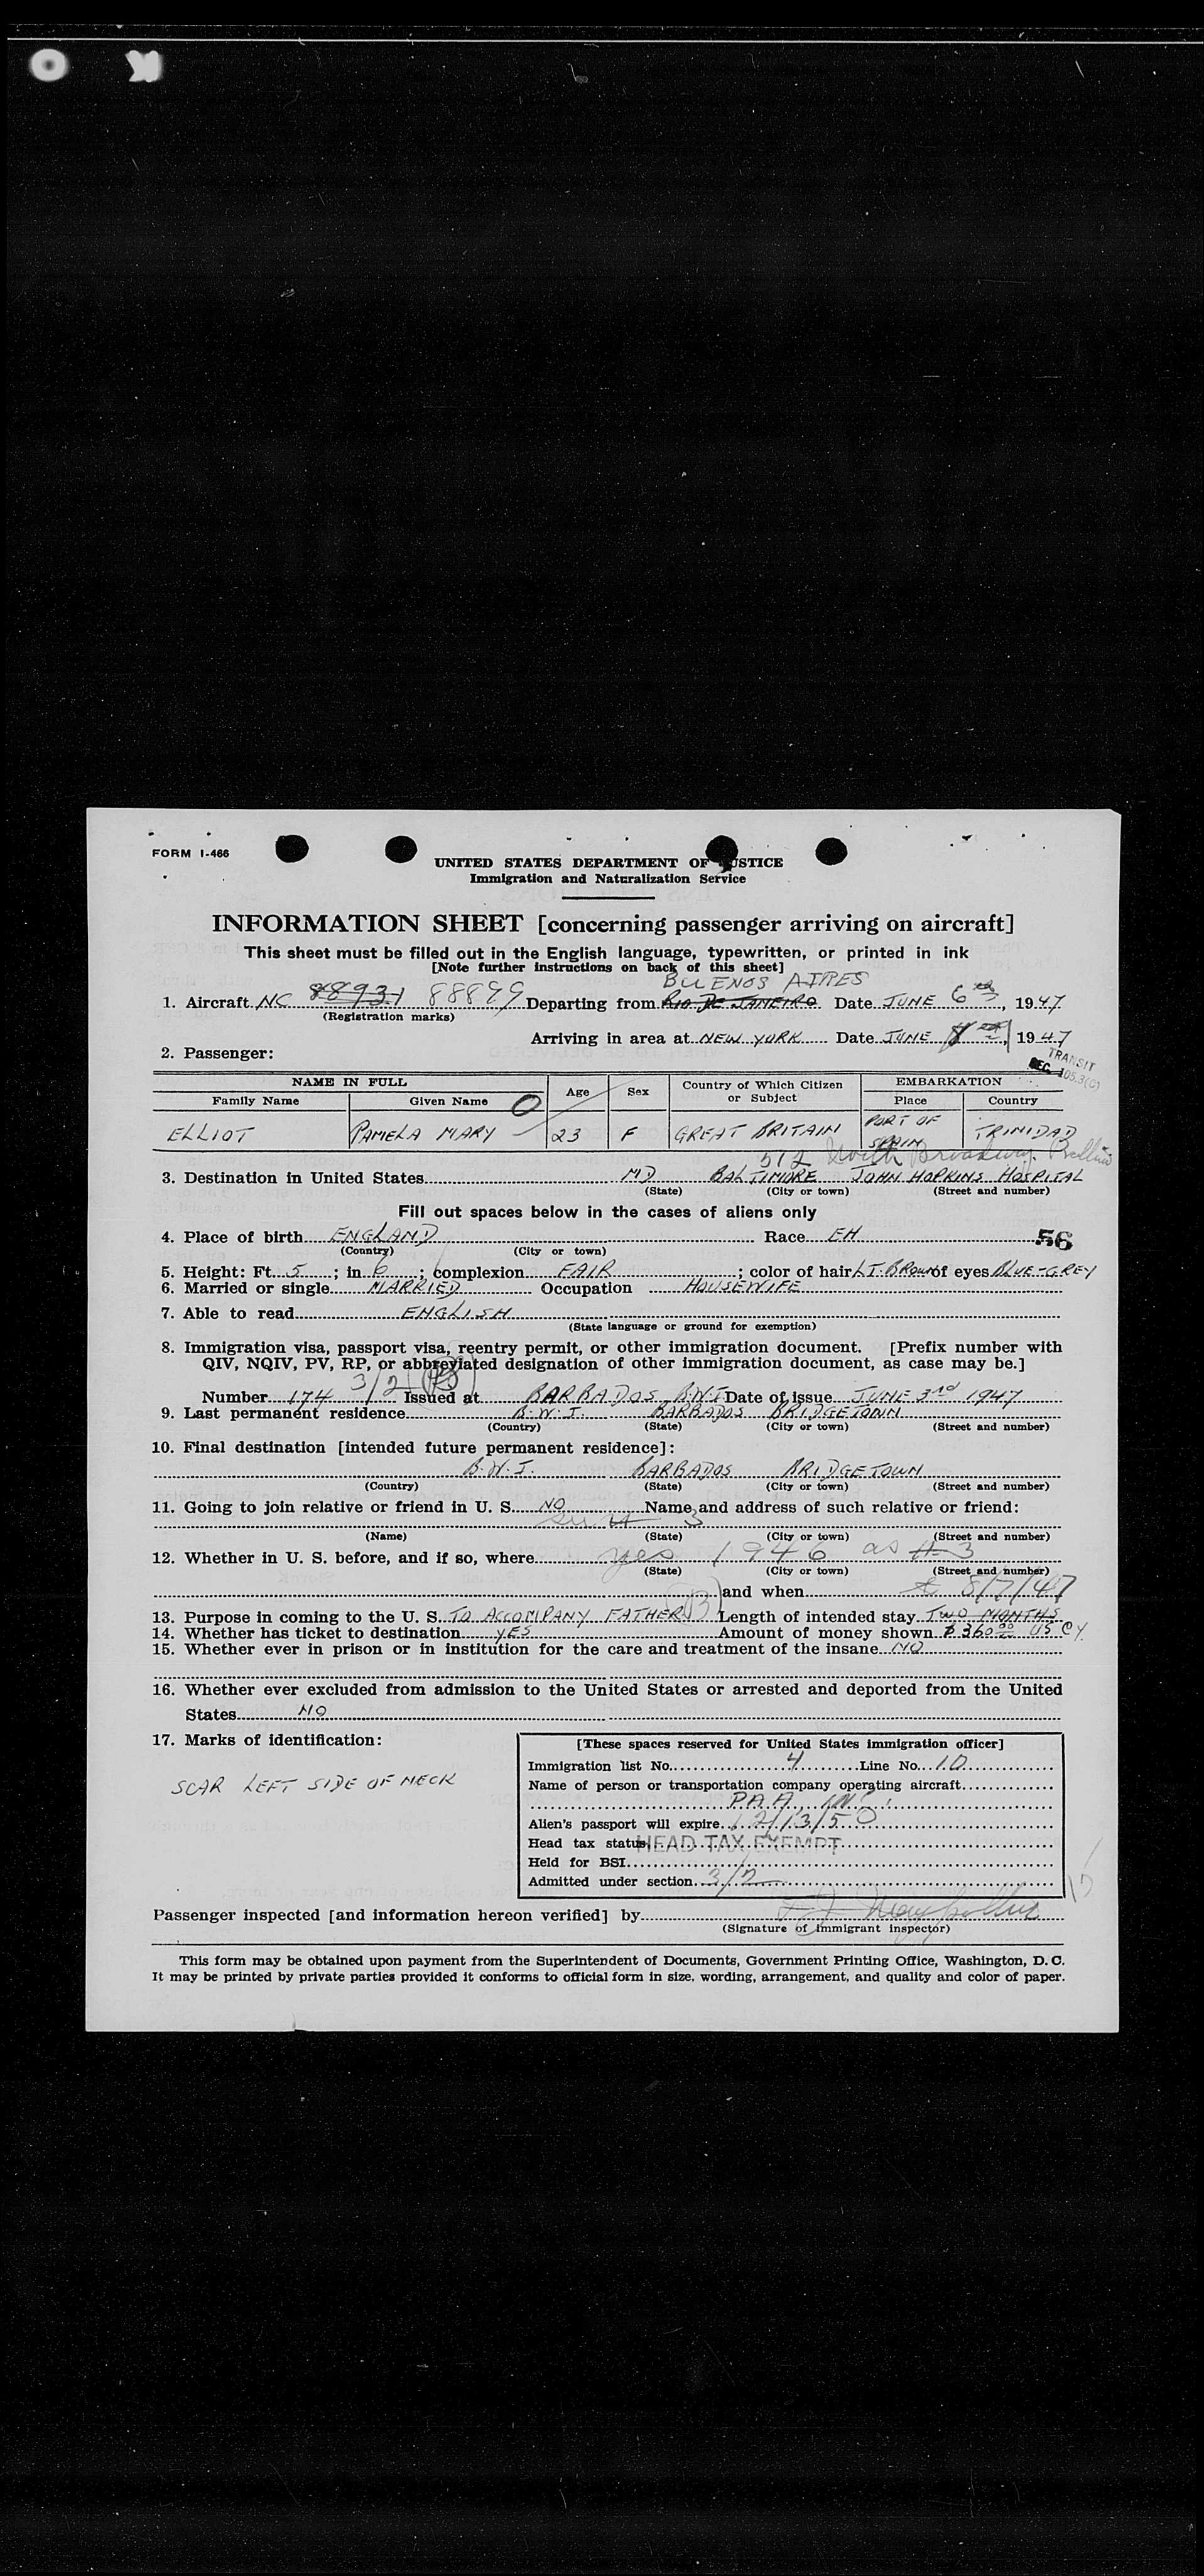 FORM I-466
UNITED STATES DEPARTMENT OF JUSTICE
Immigration and Naturalization Service
INFORMATION SHEET [concerning passenger arriving on aircraft]
This sheet must be filled out in the English language, typewritten, or printed in ink
[Note further instructions on back of this sheet]
BUENOS AIRES
1. Aircraft NC 88931 88899 Departing from RIO DE JANEIRO Date JUNE 6th, 1947
(Registration marks)
Arriving in area at NEW YORK Date JUNE 1947
2. Passenger:
TRANSIT
SEC. 105.3(C)
NAME IN FULL Age Sex Country of Which Citizen or Subject EMBARKATION
Family Name Given Name Place Country
ELLIOT PAMELA MARY 23 F GREAT BRITAIN PORT OF SPAIN TRINIDAD
512 North Broadway
3. Destination in United States MD BALTIMORE JOHN HOPKINS HOSPITAL
(State) (City or town) (Street and number)
Fill out spaces below in the cases of aliens only
4. Place of birth ENGLAND Race EH 56
(Country) (City or town)
5. Height: Ft. 5; in 6; complexion FAIR; color of hair LT. BROWN of eyes BLUE-GREY
6. Married or single MARRIED Occupation HOUSEWIFE
7. Able to read ENGLISH
(State language or ground for exemption)
8. Immigration visa, passport visa, reentry permit, or other immigration document. [Prefix number with
QIV, NQIV, PV, RP, or abbreviated designation of other immigration document, as case may be.]
Number 174 3/2 (B) Issued at BARBADOS B.W.I. Date of issue JUNE 3rd 1947
9. Last permanent residence B.W.I. BARBADOS BRIDGETOWN
(Country) (State) (City or town) (Street and number)
10. Final destination [intended future permanent residence]:
B.W.I. BARBADOS BRIDGETOWN
(Country) (State) (City or town) (Street and number)
11. Going to join relative or friend in U. S. NO Name and address of such relative or friend:
(Name) (State) (City or town) (Street and number)
12. Whether in U. S. before, and if so, where yes 1946 as
(State) (City or town) (Street and number)
and when 8/7/47
13. Purpose in coming to the U. S. TO ACCOMPANY FATHER (B) Length of intended stay TWO MONTHS
14. Whether has ticket to destination YES Amount of money shown $ 360.00 US CY.
15. Whether ever in prison or in institution for the care and treatment of the insane NO
16. Whether ever excluded from admission to the United States or arrested and deported from the United
States NO
17. Marks of identification:
SCAR LEFT SIDE OF NECK
[These spaces reserved for United States immigration officer]
Immigration list No. 4 Line No. 10
Name of person or transportation company operating aircraft
P.A.A., INC.
Alien's passport will expire 12/13/50
Head tax status HEAD TAX EXEMPT
Held for BSI
Admitted under section 3/2
Passenger inspected [and information hereon verified] by
(Signature of immigrant inspector)
This form may be obtained upon payment from the Superintendent of Documents, Government Printing Office, Washington, D. C.
It may be printed by private parties provided it conforms to official form in size, wording, arrangement, and quality and color of paper.